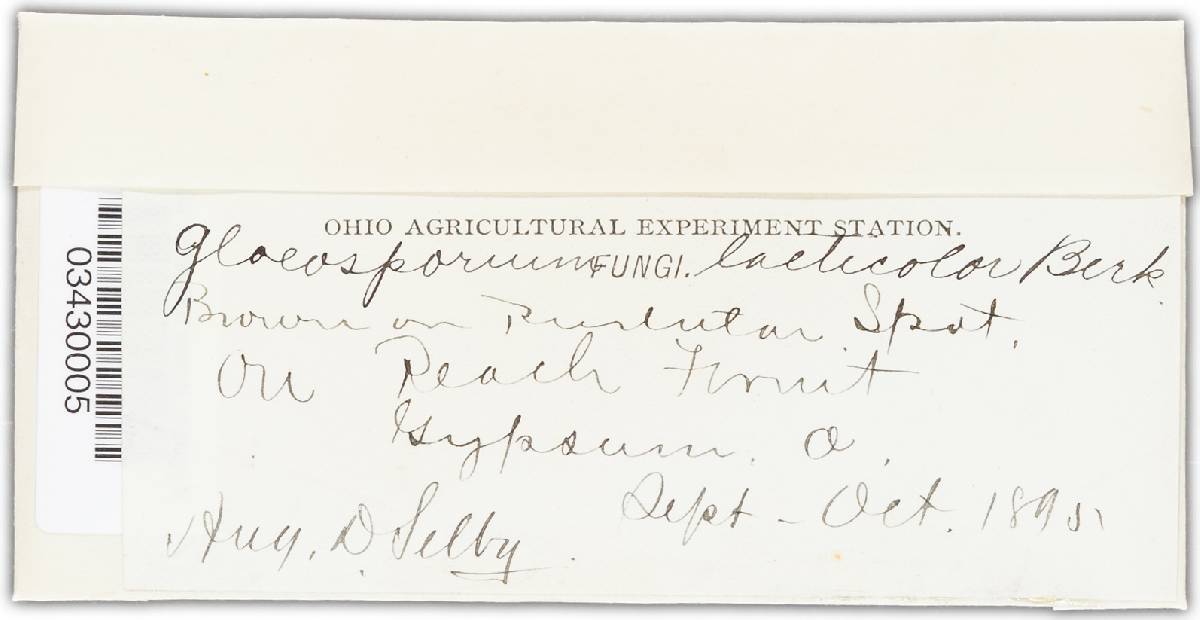 OHIO AGRICULTURAL EXPERIMENT STATION.
FUNGI.
Gloeosporium laeticolor Berk.
Brown or Pustular Spot.
On Peach Fruit
Gypsum. O.
Sept - Oct. 1895
Aug. D. Selby
03430005